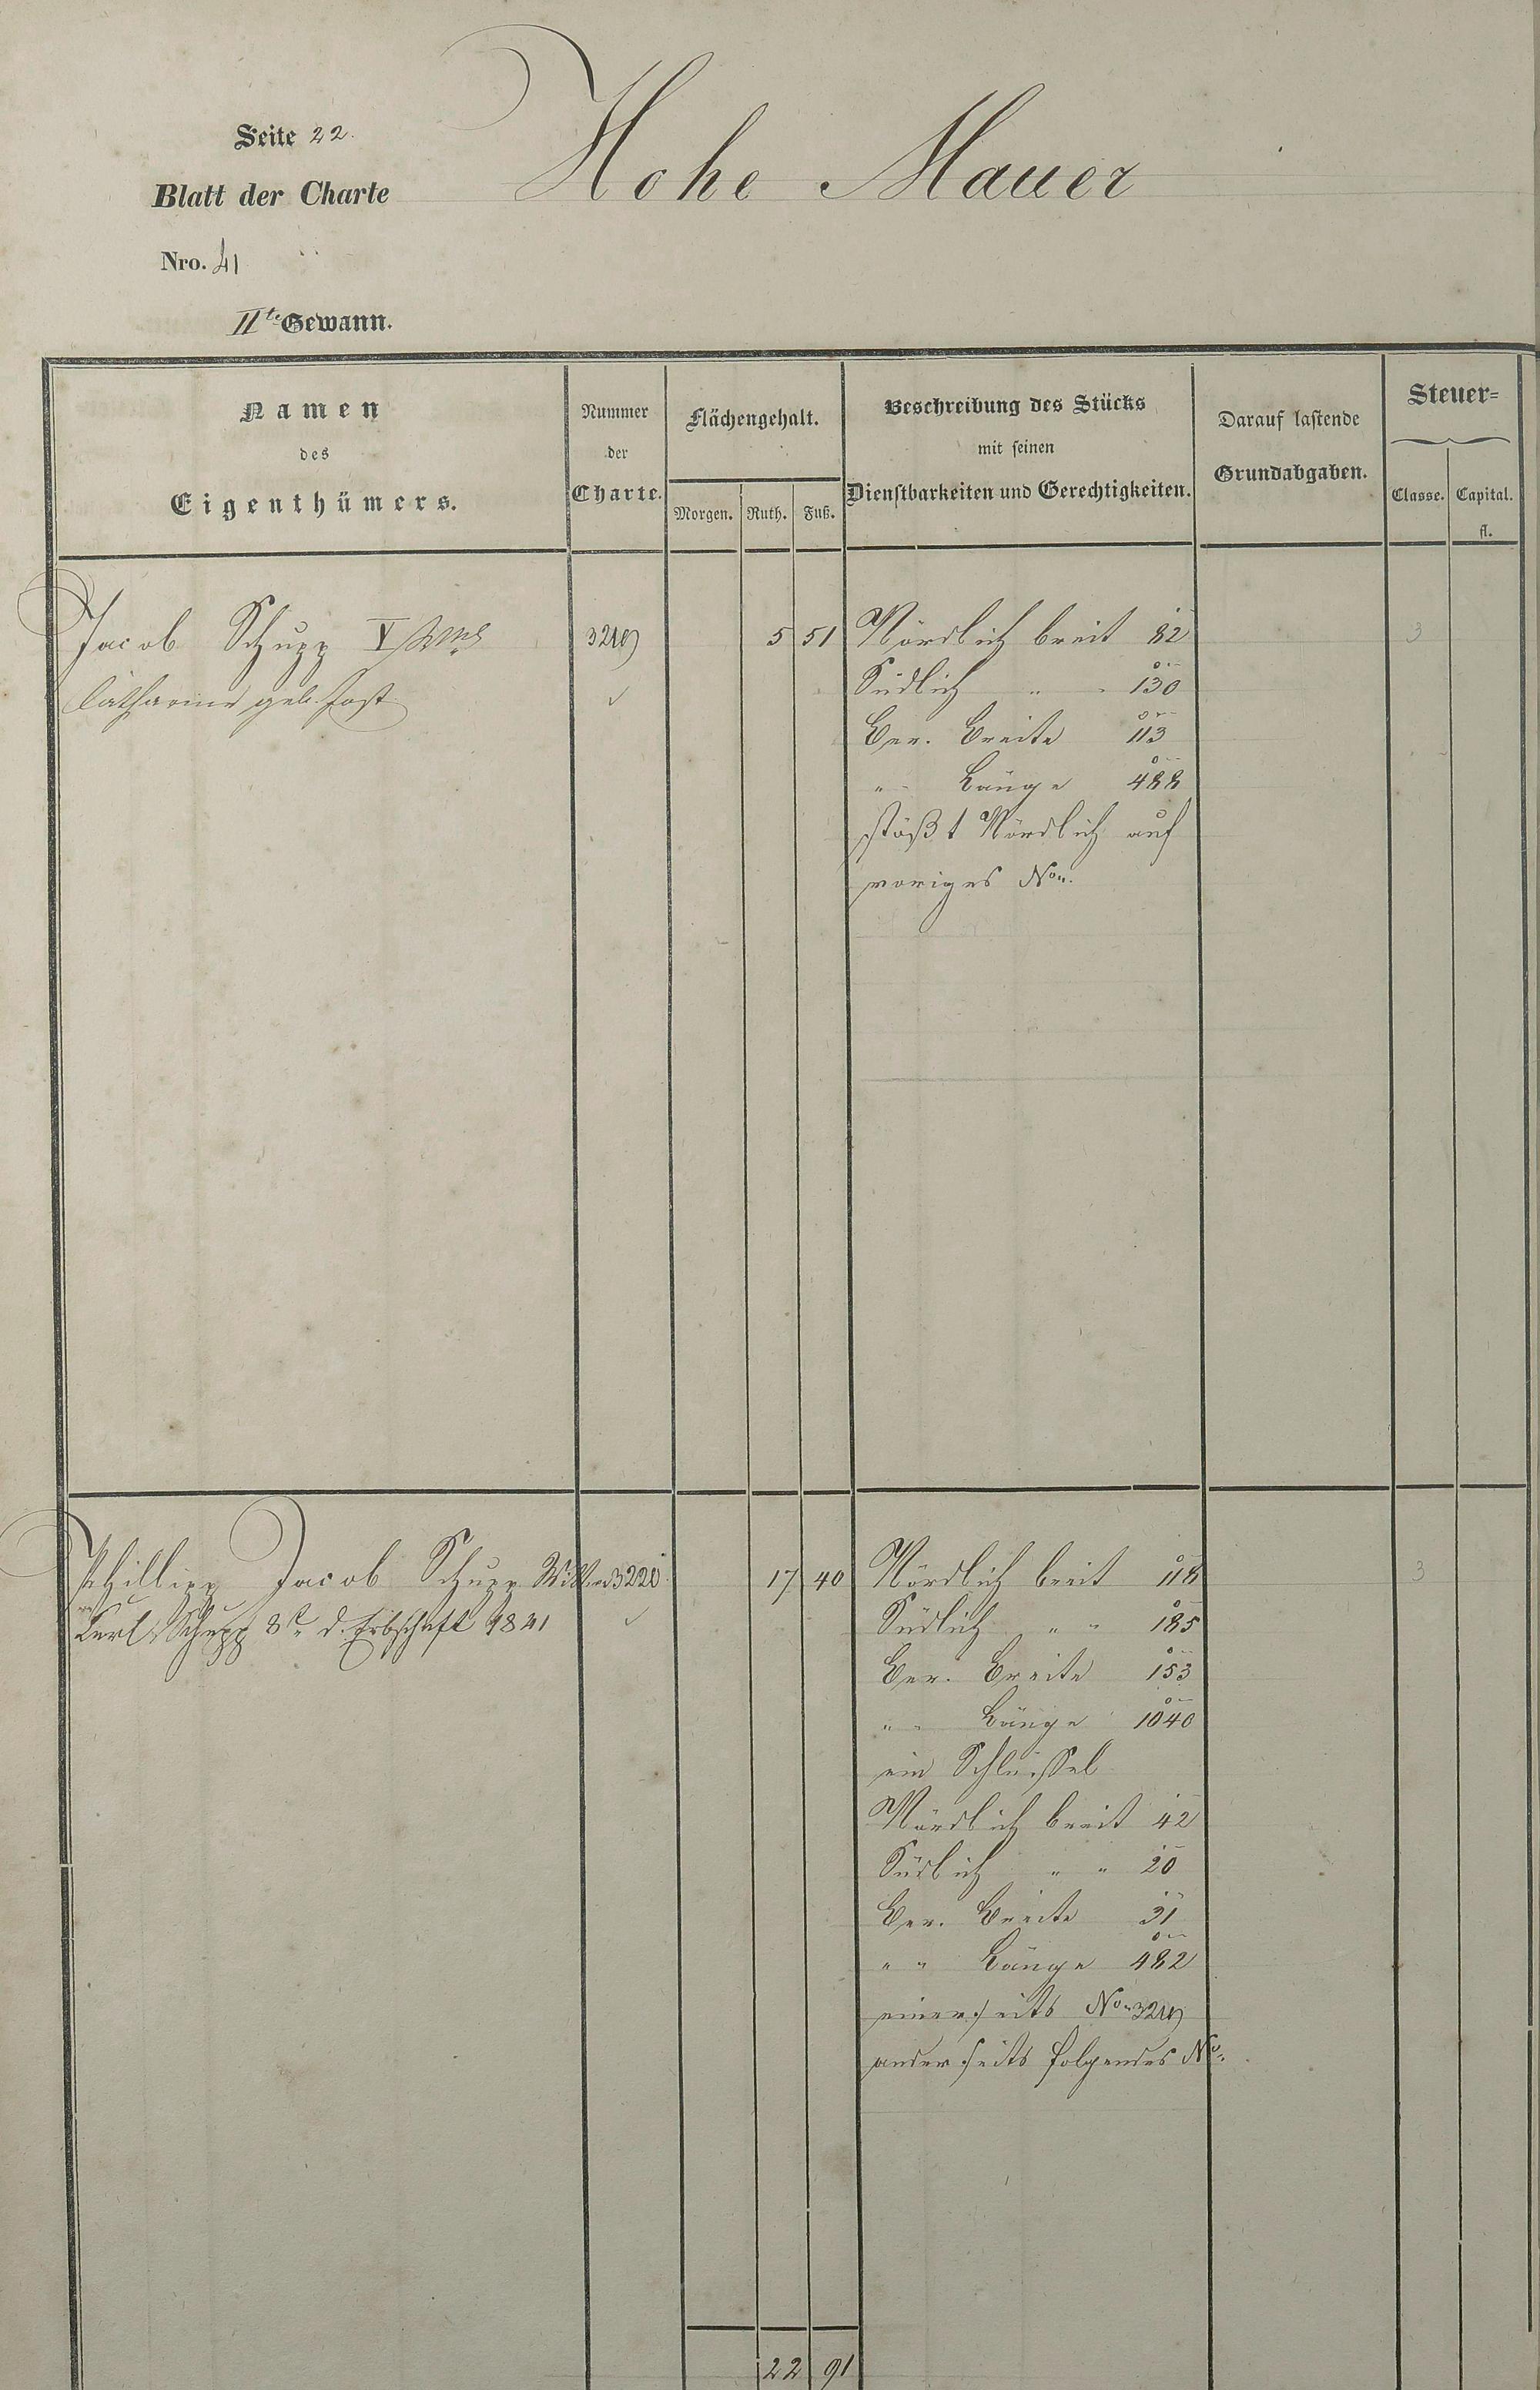 Seite 22.
Hohe Mauer
Blatt der Charte
Nro. 41
IIte Gewann.
Namen
des
Eigenthümers.
Nummer
der
Charte.
Flächengehalt.
Morgen. Ruth. Fuß.
Beschreibung des Stücks
mit seinen
Dienstbarkeiten und Gerechtigkeiten.
Darauf lastende
Grundabgaben.
Steuer=
Classe. Capital.
fl.
Jacob Schupp V 3219 5 51 Nördlich breit 82 3
Catharine geb. Jost
Südlich " " 130
Ber. Breite 113
" " Länge 488
stößt Nördlich auf
voriges No.
Phillipp Jacob Schupp Wittwe 3220 17 40 Nördlich breit 118 3
Karl Schupp 3t d. Erbschaft 1841
Südlich " " 185
Ber. Breite 153
" " Länge 1040
ein Schleissel
Nördlich breit 42
Südlich " " 20
Ber. Breite 31
" " Länge 482
einerseits No. 3219
anderseits folgendes No.
22 91